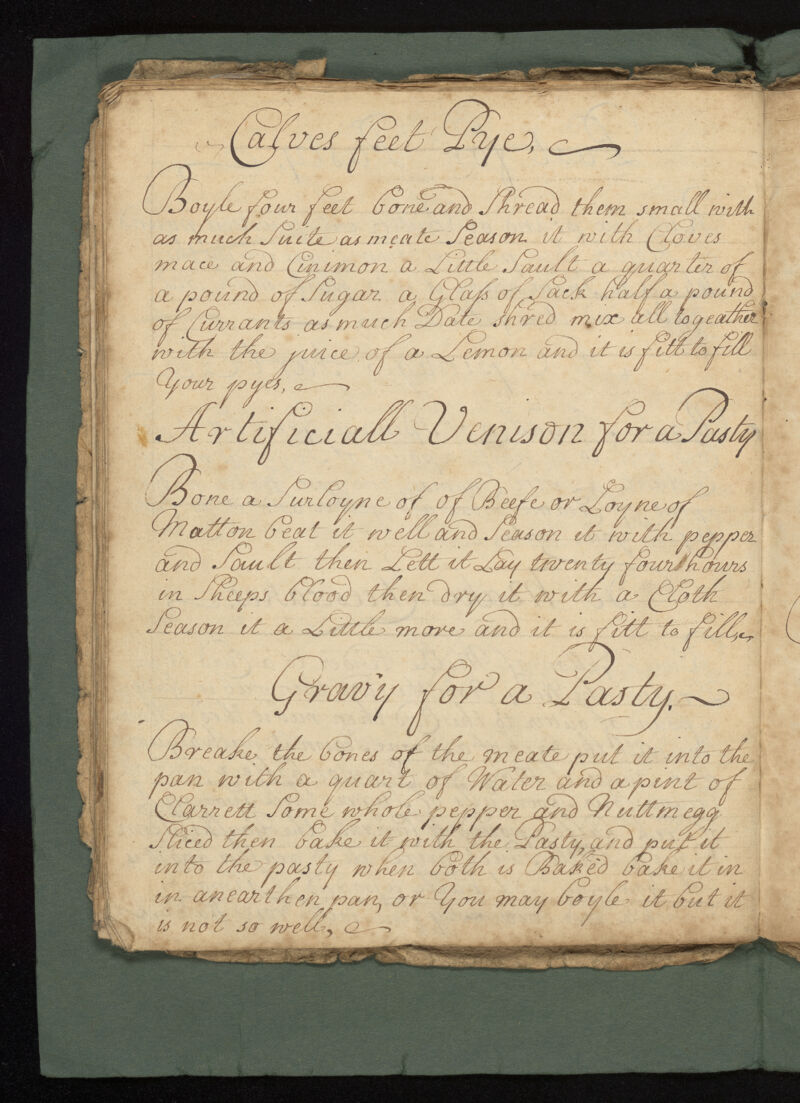 Calves feet Pye,
Boyle four feet bone and Shread them small with
as much Suite as meate Season it with Cloves
mace and Cinimon a Little Sault a quarter of
a pound of Sugar a Glass of Sack half a pound
of Currants as much Date shred mix all togeather
with the juice of a Lemon and it is fitt to fill
Your pyes,
Artificiall Venison for a Pasty
Bone a Surloyne of of Beefe or Loyne of
Matton beat it well and Season it with pepper
and Sault then Lett it Lay twenty four hours
in Sheeps blood then dry it with a Cloth
Season it a Little more and it is fitt to fill,
Gravy for a Pasty.
Breake the bones of the meate put it into the
pan with a quart of Water and a pint of
Clarrett Some whole pepper and Nuttmegg
Sliced then bake it with the Pasty, and put it
into the pasty when both is Baked bake it in
in an earthen pan, or You may boyle it but it
is not so well,